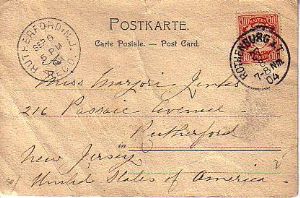 POSTKARTE.
Carte Postale. — Post Card.
RUTHERFORD, N.J.
SEP
PM
REC'D
ROTHENBURG
7-8 NM
04
Miss Marjori Jenks
216 Passaic Avenue
Rutherford
New Jersey
United States of America